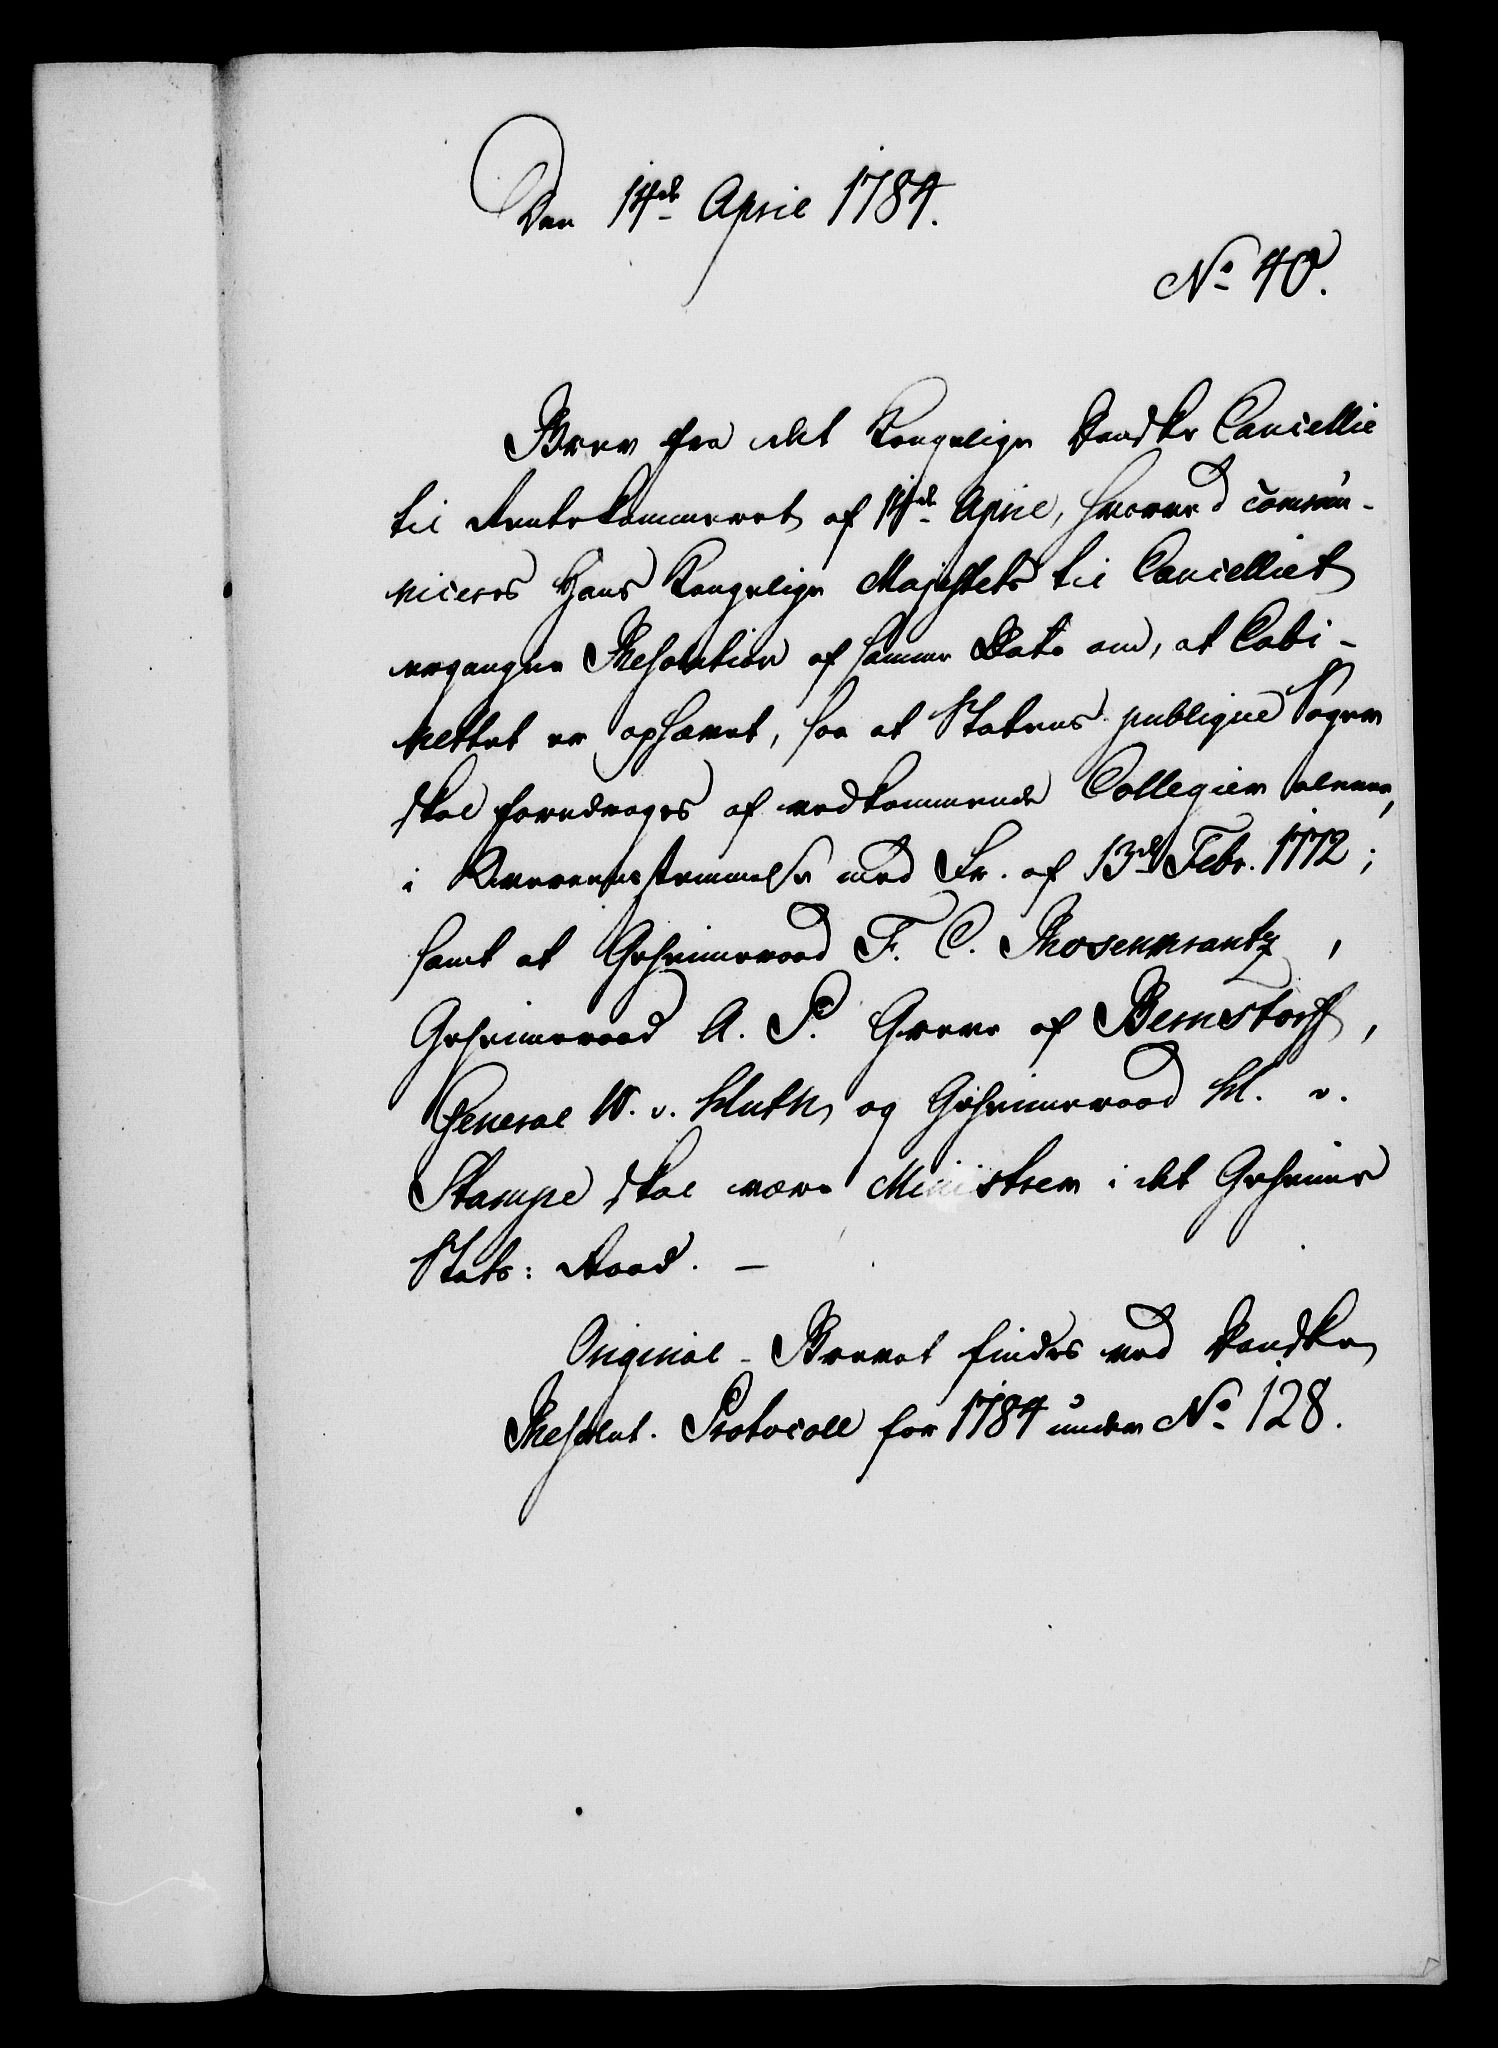 Den 14de April 1784.
No 40.
Brev fra det Kongelige Danske Cancellie
til Rentekammeret af 14de April, hvorved commu-
niceres Hans Kongelige Majestets til Cancelliet
ergangne Resolution af samme Dato om, at Cabi-
nettet er ophævet, saa at Statens publique Sager
skal foredrages af vedkommende Collegier alene,
i Overeensstemmelse med Fr. af 13de Febr. 1772;
samt at Geheimeraad F. C. Rosenkrantz,
Geheimeraad A. P. Greve af Bernstorff,
General W. v. Huth og Geheimeraad H. v.
Stampe skal være Ministrer i det Geheime
Stats: Raad. —
Original-Brevet findes ved Danske
Resolut. Protocoll for 1784 under No 128.